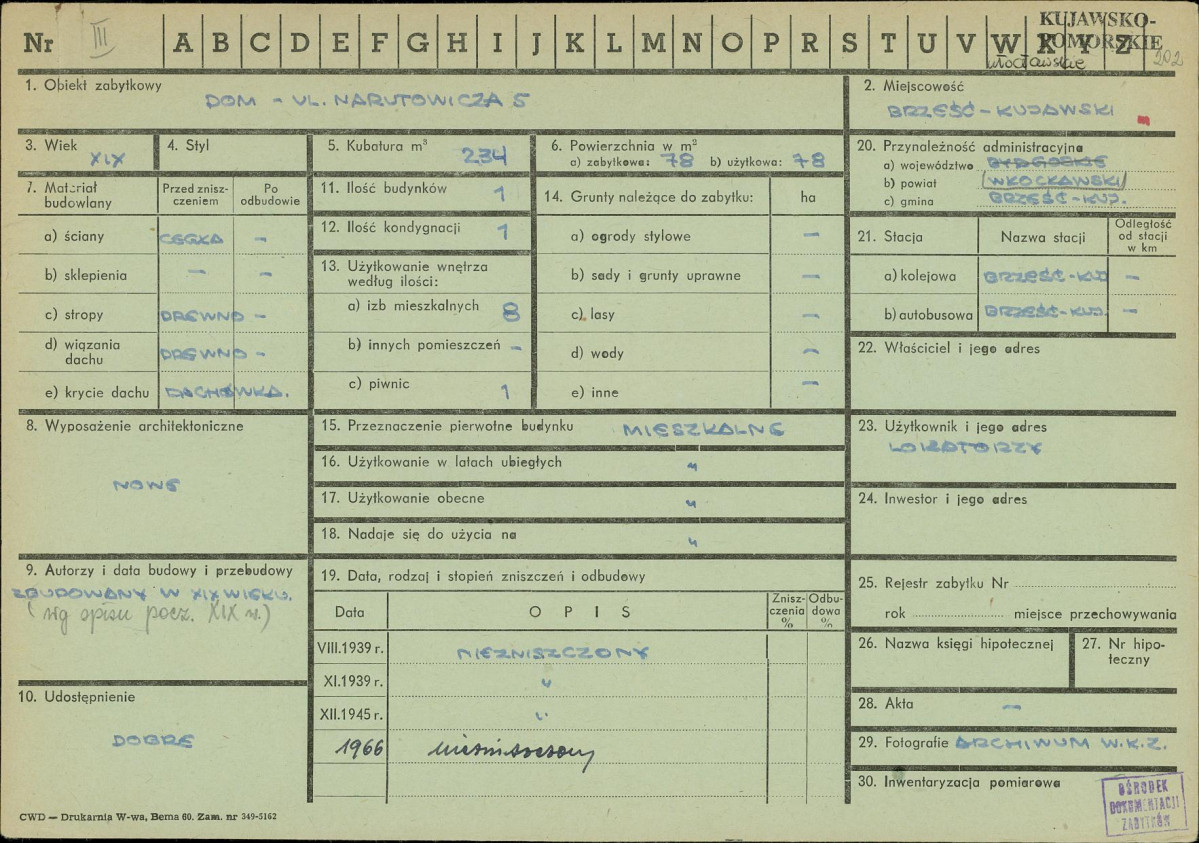 Nr III A B C D E F G H I J K L M N O P R S T U V W X Y Z
KUJAWSKO-
POMORSKIE
włocławskie 202
1. Obiekt zabytkowy
DOM - UL. NARUTOWICZA 5
2. Miejscowość
BRZEŚĆ-KUJAWSKI
3. Wiek
XIX
4. Styl
5. Kubatura m³
234
6. Powierzchnia w m²
a) zabytkowa: 78 b) użytkowa: 78
20. Przynależność administracyjna
a) województwo BYDGOSKIE
b) powiat WŁOCŁAWSKI
c) gmina BRZEŚĆ-KUJ.
7. Materiał budowlany
Przed znisz-
czeniem
Po
odbudowie
a) ściany CEGŁA -
b) sklepienia - -
c) stropy DREWNO -
d) wiązania
dachu DREWNO -
e) krycie dachu DACHÓWKA.
11. Ilość budynków 1
12. Ilość kondygnacji 1
13. Użytkowanie wnętrza
według ilości:
a) izb mieszkalnych 8
b) innych pomieszczeń -
c) piwnic 1
14. Grunty należące do zabytku: ha
a) ogrody stylowe -
b) sady i grunty uprawne -
c) lasy -
d) wody -
e) inne -
21. Stacja Nazwa stacji
Odległość
od stacji
w km
a) kolejowa BRZEŚĆ-KUJ -
b) autobusowa BRZEŚĆ-KUJ. -
22. Właściciel i jego adres
8. Wyposażenie architektoniczne
NOWE
15. Przeznaczenie pierwotne budynku MIESZKALNE
16. Użytkowanie w latach ubiegłych "
17. Użytkowanie obecne "
18. Nadaje się do użycia na "
23. Użytkownik i jego adres
LOKATORZY
24. Inwestor i jego adres
9. Autorzy i data budowy i przebudowy
ZBUDOWANY W XIX WIEKU.
(wg opisu pocz. XIX w.)
10. Udostępnienie
DOBRE
19. Data, rodzaj i stopień zniszczeń i odbudowy
Data OPIS
Znisz-
czenia
%
Odbu-
dowa
%
VIII.1939 r. NIEZNISZCZONY
XI.1939 r. "
XII.1945 r. "
1966 niezniszczony
25. Rejestr zabytku Nr
rok miejsce przechowywania
26. Nazwa księgi hipotecznej
27. Nr hipo-
teczny
28. Akta -
29. Fotografie ARCHIWUM W.K.Z.
30. Inwentaryzacja pomiarowa
OŚRODEK
DOKUMENTACJI
ZABYTKÓW
CWD — Drukarnia W-wa, Bema 60. Zam. nr 349-5162